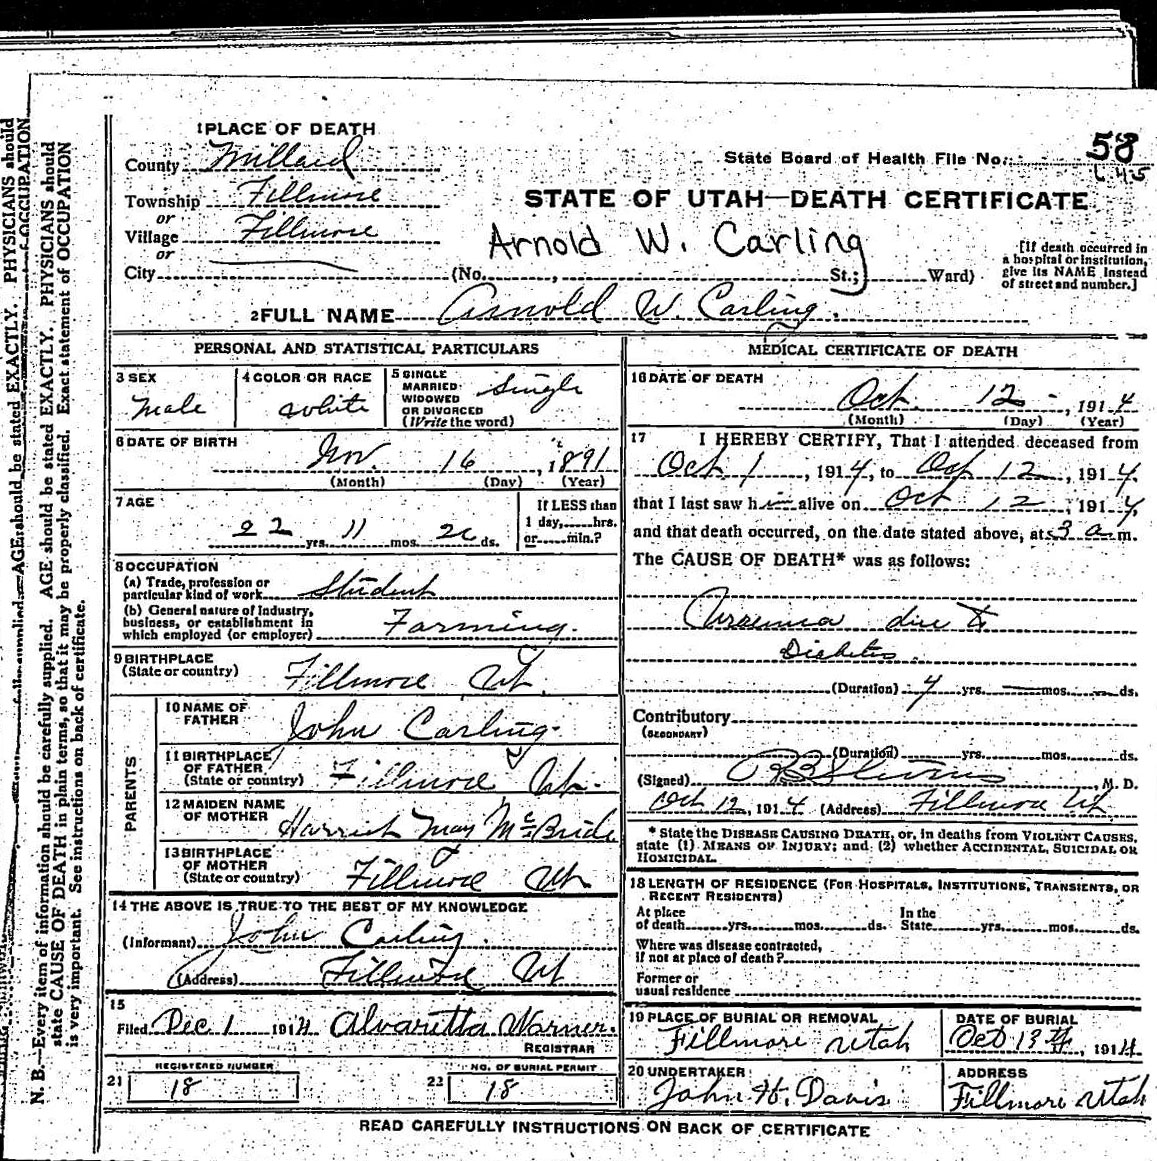 N. B.—Every item of information should be carefully supplied. AGE should be stated EXACTLY. PHYSICIANS should
state CAUSE OF DEATH in plain terms, so that it may be properly classified. Exact statement of OCCUPATION
is very important. See instructions on back of certificate.
1 PLACE OF DEATH
County Millard
State Board of Health File No. 58
Township Fillmore
STATE OF UTAH—DEATH CERTIFICATE
or
Village Fillmore
or
Arnold W. Carling
City (No. , St.; Ward)
[If death occurred in
a hospital or institution,
give its NAME instead
of street and number.]
2 FULL NAME Arnold W. Carling.
PERSONAL AND STATISTICAL PARTICULARS
3 SEX
male
4 COLOR OR RACE
white
5 SINGLE
MARRIED
WIDOWED
OR DIVORCED
(Write the word)
Single
6 DATE OF BIRTH
Nov. 16, 1891
(Month) (Day) (Year)
7 AGE
22 yrs. 11 mos. ds.
If LESS than
1 day, hrs.
or min.?
8 OCCUPATION
(a) Trade, profession or
particular kind of work Student
(b) General nature of Industry,
business, or establishment in
which employed (or employer) Farming.
9 BIRTHPLACE
(State or country) Fillmore Ut.
PARENTS
10 NAME OF
FATHER John Carling.
11 BIRTHPLACE
OF FATHER
(State or country) Fillmore Ut.
12 MAIDEN NAME
OF MOTHER Harriet May McBride
13 BIRTHPLACE
OF MOTHER
(State or country) Fillmore Ut
14 THE ABOVE IS TRUE TO THE BEST OF MY KNOWLEDGE
(Informant) John Carling.
(Address) Fillmore Ut
15
Filed Dec 1 1914 Alvaretta Warner.
REGISTRAR
21 REGISTERED NUMBER
18
22 NO. OF BURIAL PERMIT
18
MEDICAL CERTIFICATE OF DEATH
16 DATE OF DEATH
Oct. 12, 1914
(Month) (Day) (Year)
17 I HEREBY CERTIFY, That I attended deceased from
Oct 1, 1914, to Oct 12, 1914,
that I last saw him alive on Oct 12, 1914,
and that death occurred, on the date stated above, at 3 a. m.
The CAUSE OF DEATH* was as follows:
Uraemia due to
Diabetes.
(Duration) 4 yrs. mos. ds.
Contributory
(SECONDARY)
(Duration) yrs. mos. ds.
(Signed) M. D.
Oct 12, 1914 (Address) Fillmore Ut
* State the DISEASE CAUSING DEATH, or, in deaths from VIOLENT CAUSES,
state (1) MEANS OF INJURY; and (2) whether ACCIDENTAL, SUICIDAL OR
HOMICIDAL.
18 LENGTH OF RESIDENCE (FOR HOSPITALS, INSTITUTIONS, TRANSIENTS, OR
RECENT RESIDENTS)
At place
of death yrs. mos. ds.
In the
State yrs. mos. ds.
Where was disease contracted,
if not at place of death?
Former or
usual residence
19 PLACE OF BURIAL OR REMOVAL
Fillmore Utah
DATE OF BURIAL
Oct 13th, 1914
20 UNDERTAKER
John H. Davis
ADDRESS
Fillmore Utah
READ CAREFULLY INSTRUCTIONS ON BACK OF CERTIFICATE